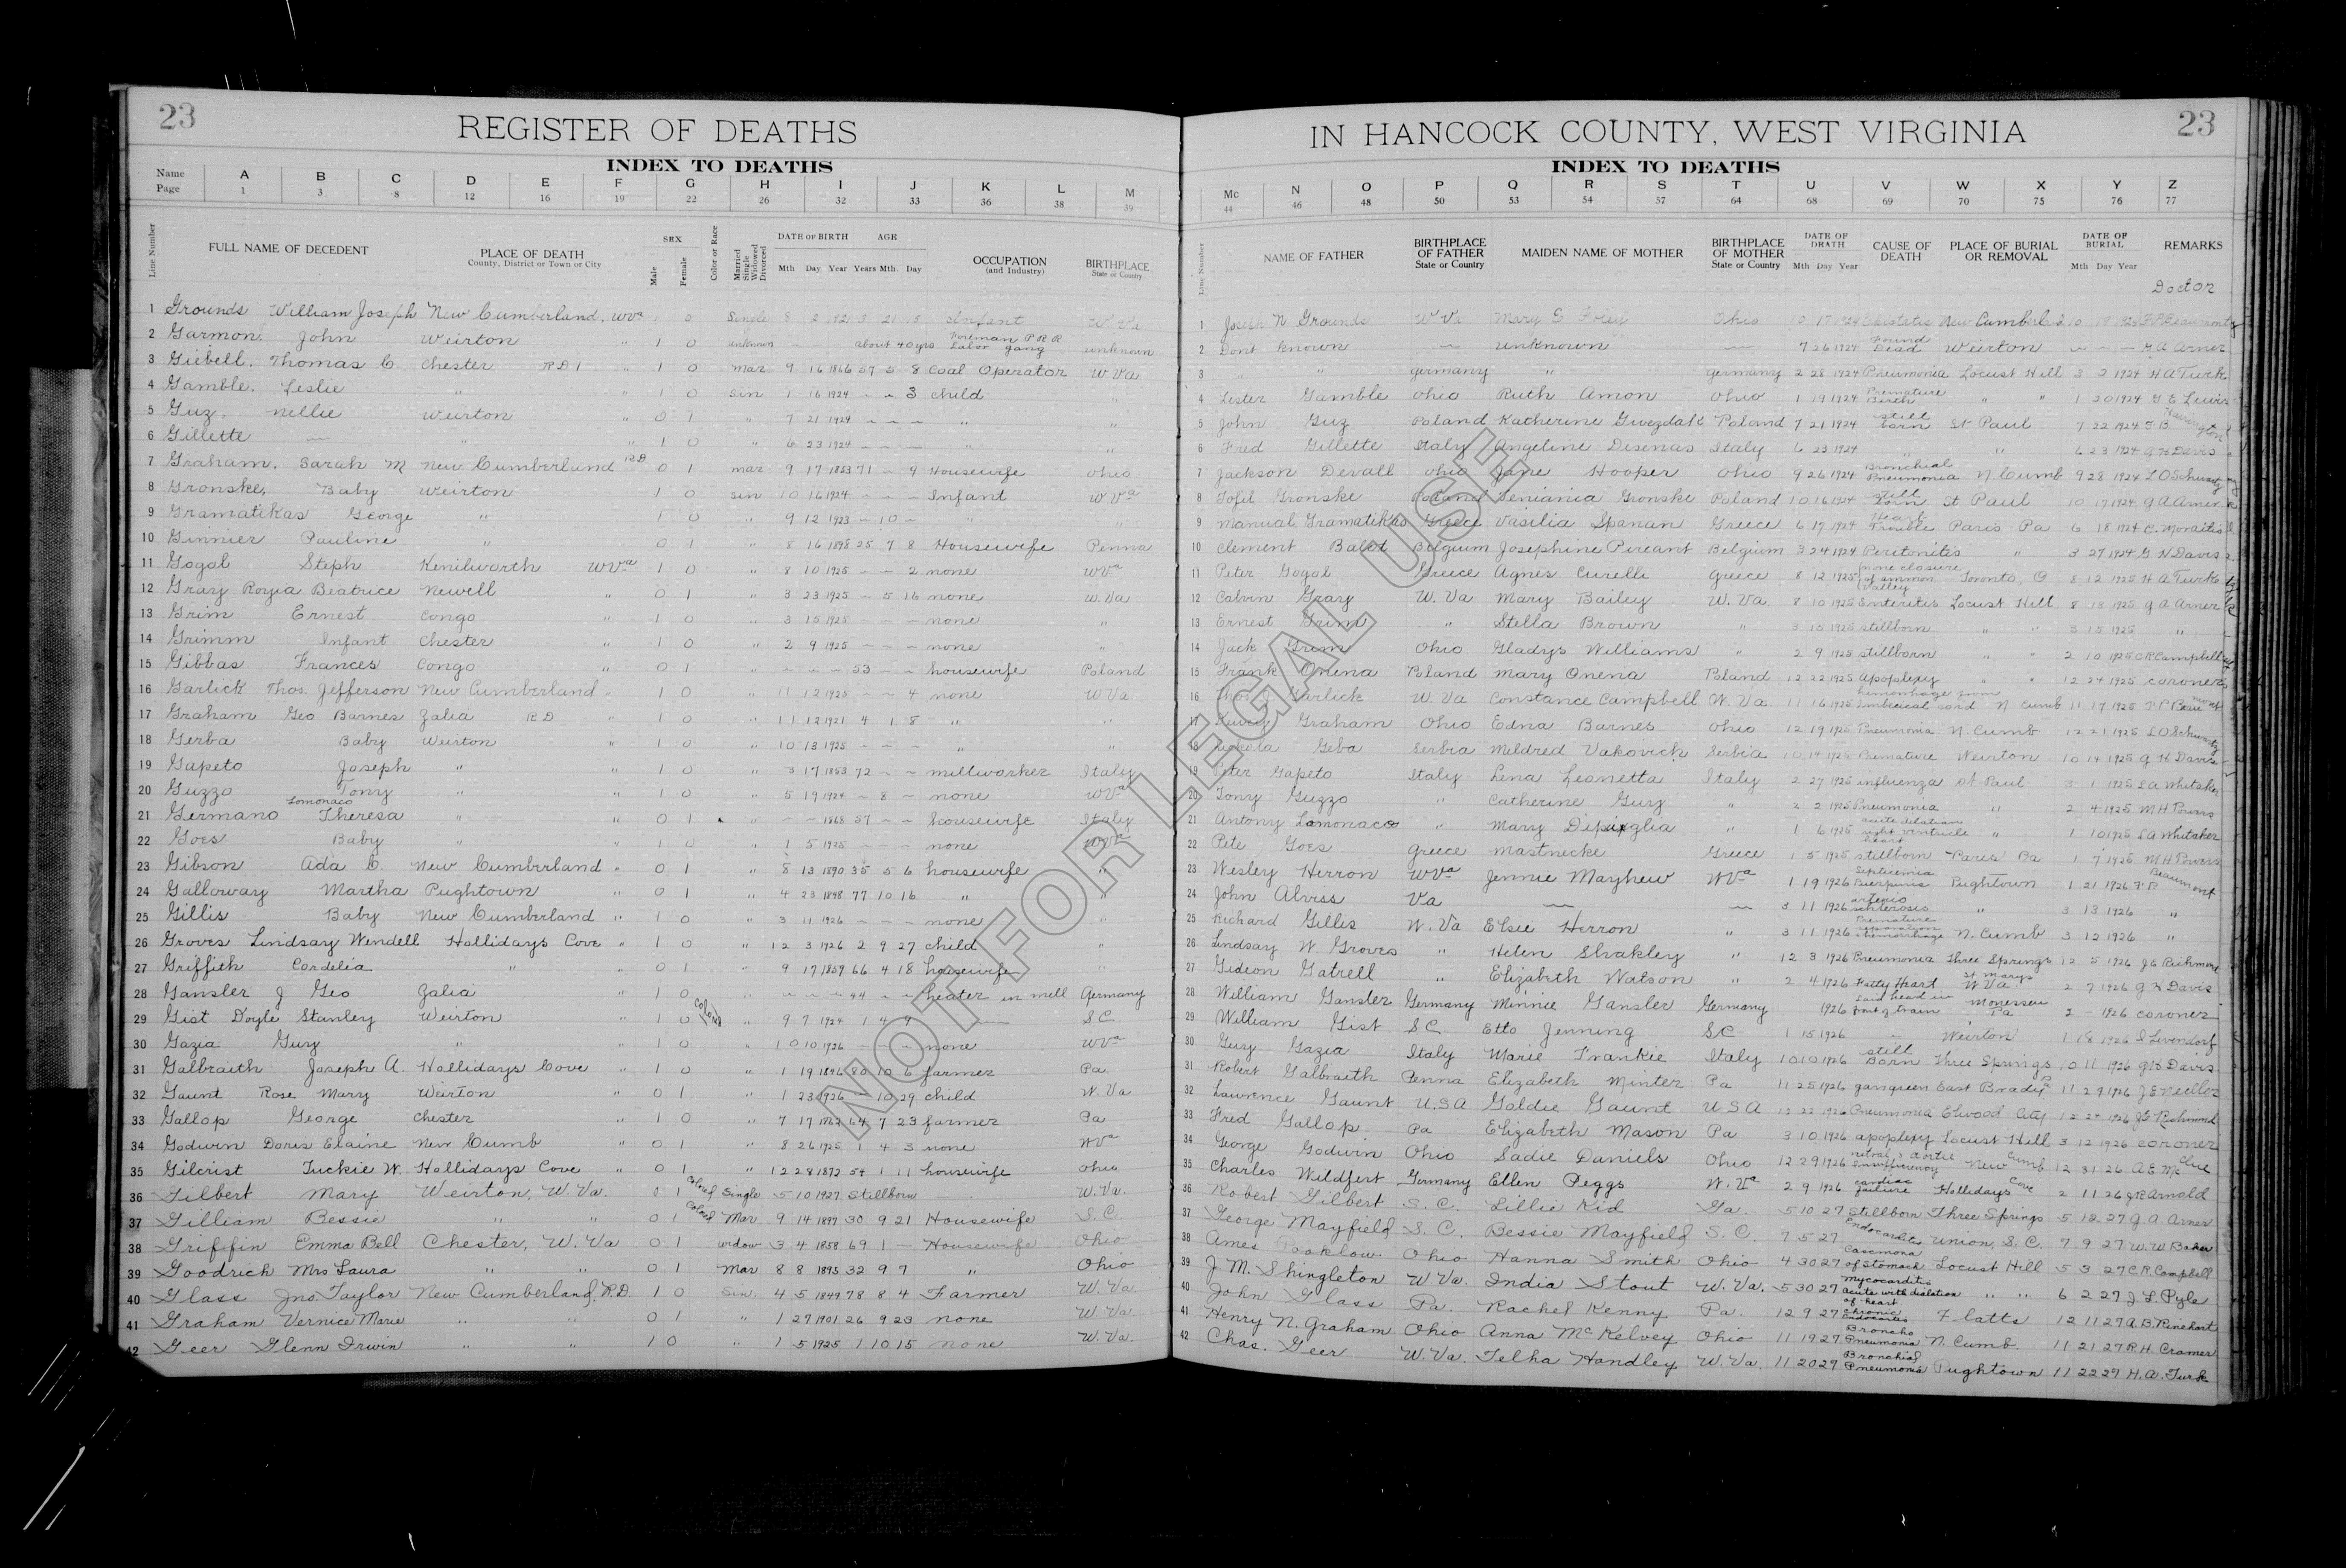 23
REGISTER OF DEATHS
INDEX TO DEATHS
Name A B C D E F G H I J K L M
Page 1 3 8 12 16 19 22 26 32 33 36 38 39
Line Number FULL NAME OF DECEDENT PLACE OF DEATH County, District or Town or City SEX Male Female Color or Race Married Single Widowed Divorced DATE OF BIRTH Mth Day Year AGE Years Mth. Day OCCUPATION (and Industry) BIRTHPLACE State or Country
1 Grounds William Joseph New Cumberland, WVa 0 Single 8 2 Infant W Va
2 Garmon, John Weirton " 1 0 unknown about 40 yrs Foreman P R R Labor gang unknown
3 Giebell, Thomas C Chester R D 1 " 1 0 mar 9 16 1866 57 5 8 Coal Operator W Va
4 Gamble, Leslie " " 1 0 Sin 1 16 1924 - - 3 child "
5 Guz, Nellie Weirton " 0 1 " 7 21 1924 - - - " "
6 Gillette — " " 1 0 " 6 23 1924 - - - " "
7 Graham, Sarah M New Cumberland RD 0 1 mar 9 17 1853 71 - 9 Housewife Ohio
8 Gronske, Baby Weirton 1 0 sin 10 16 1924 - - - Infant W Va
9 Gramatikas George " 1 0 " 9 12 1923 - 10 - " "
10 Ginnier Pauline " 0 1 " 8 16 1898 25 7 8 Housewife Penna
11 Gogal Steph Kenilworth WVa 1 0 " 8 10 1925 - - 2 none WVa
12 Gray Beatrice Newell " 0 1 " 3 23 1925 - 5 16 none W. Va
13 Grim Ernest Congo " 1 0 " 3 15 1925 - - - none "
14 Grimm Infant Chester " 1 0 " 2 9 1925 - - - none "
15 Gibbas Frances Congo " 0 1 " - - - 53 - - housewife Poland
16 Garlick Thos. Jefferson New Cumberland " 1 0 " 11 12 1925 - - 4 none W Va
17 Graham Geo Barnes Zalia R D " 1 0 " 11 12 1921 4 1 8 " "
18 Gerba Baby Weirton " 1 0 " 10 13 1925 - - - " "
19 Gapeto Joseph " " 1 0 " 3 17 1853 72 - - millworker Italy
20 Guzzo Tony " " 1 0 " 5 19 1924 - 8 - none WVa
21 Germano Lomonaco Theresa " " 0 1 " - - 1868 57 - - housewife Italy
22 Goes Baby " " 1 0 " 1 5 1925 - - - none WVa
23 Gibson Ada C. New Cumberland " 0 1 " 8 13 1890 35 5 6 housewife "
24 Galloway Martha Pughtown " 0 1 " 4 23 1848 77 10 16 " "
25 Gillis Baby New Cumberland " 1 0 " 3 11 1926 - - - none "
26 Groves Lindsay Wendell Hollidays Cove " 1 0 " 12 3 1926 2 9 27 child "
27 Griffith Cordelia " " 0 1 " 9 17 1859 66 4 18 housewife "
28 Gansler J Geo Zalia " 1 0 " - - - 44 - - heater in mill Germany
29 Gist Doyle Stanley Weirton " 1 0 Colored " 9 7 1924 1 4 9 — S C
30 Gazia Guy " " 1 0 " 10 10 1926 - - - none WVa
31 Galbraith Joseph A. Hollidays Cove " 1 0 " 1 19 1846 80 10 6 farmer Pa
32 Gaunt Rose Mary Weirton " 0 1 " 1 23 1926 - 10 29 child W. Va
33 Gallop George Chester " 1 0 " 7 17 64 7 23 farmer Pa
34 Godwin Doris Elaine New Cumb " 0 1 " 8 26 1925 1 4 3 none WVa
35 Gilcrist Tuckie W. Hollidays Cove " 0 1 " 12 28 1872 54 1 11 housewife ohio
36 Gilbert Mary Weirton, W. Va. 0 1 Colored Single 5 10 1927 Stillborn W. Va.
37 Gilliam Bessie " " 0 1 Colored Mar 9 14 1897 30 9 21 Housewife S. C.
38 Griffin Emma Bell Chester, W. Va 0 1 widow 3 4 1858 69 1 - Housewife Ohio
39 Goodrich Mrs Laura " " 0 1 Mar 8 8 1895 32 9 7 " Ohio
40 Glass Jno. Taylor New Cumberland, R.D. 1 0 Sin. 4 5 1849 78 8 4 Farmer W. Va.
41 Graham Vernice Marie " " 0 1 " 1 27 1901 26 9 23 none W. Va.
42 Geer Glenn Irwin " " 1 0 " 1 5 1925 1 10 15 none W. Va.
23
IN HANCOCK COUNTY, WEST VIRGINIA
INDEX TO DEATHS
Mc N O P Q R S T U V W X Y Z
44 46 48 50 53 54 57 64 68 69 70 75 76 77
Line Number NAME OF FATHER BIRTHPLACE OF FATHER State or Country MAIDEN NAME OF MOTHER BIRTHPLACE OF MOTHER State or Country DATE OF DEATH Mth Day Year CAUSE OF DEATH PLACE OF BURIAL OR REMOVAL DATE OF BURIAL Mth Day Year REMARKS
Doctor
1 Joseph N Grounds W Va Mary E Foley Ohio 10 17 1924 New Cumberland 10 19 1924 Beaumont
2 Don't known — unknown — 7 26 1924 Found Dead Weirton - - - Arner
3 " " germany " germany 2 28 1924 Pneumonia Locust Hill 3 2 1924 H A Turk
4 Lester Gamble ohio Ruth Amon Ohio 1 19 1924 Premature Birth " " 1 20 1924 G E Lewis
5 John Guz Poland Katherine Gwezdak Poland 7 21 1924 still born St Paul 7 22 1924 F B Harrington
6 Fred Gillette Italy Angeline Disenas Italy 6 23 1924 " " 6 23 1924 G H Davis
7 Jackson Devall ohio Jane Hooper Ohio 9 26 1924 Bronchial Pneumonia N. Cumb 9 28 1924 L O Schwartz
8 Tofil Gronske Poland Seniania Gronske Poland 10 16 1924 still born St Paul 10 17 1924 G A Arner
9 Manual Gramatikas Greece Vasilia Spanan Greece 6 17 1924 Heart Trouble Paris Pa 6 18 1924 C. Moraitis
10 Clement Balot Belgium Josephine Pireant Belgium 3 24 1924 Peritonitis " 3 27 1924 G H Davis
11 Peter Gogal Greece Agnes Curelli Greece 8 12 1925 none closure of ammon Valley Toronto, O 8 12 1925 H A Turk
12 Calvin Gray W. Va Mary Bailey W. Va. 8 10 1925 Enteritis Locust Hill 8 18 1925 G A Arner
13 Ernest Grim " Stella Brown " 3 15 1925 stillborn " " 3 15 1925 "
14 Jack Grim Ohio Gladys Williams " 2 9 1925 stillborn " " 2 10 1925 C R Campbell
15 Frank Onena Poland Mary Onena Poland 12 22 1925 Apoplexy " " 12 24 1925 coroner
16 Garlick W. Va Constance Campbell W. Va. 11 16 1925 hemorrhage from cord N Cumb 11 17 1925 Beaumont
17 Graham Ohio Edna Barnes Ohio 12 19 1925 Pneumonia N. Cumb 12 21 1925 L O Schwartz
18 Geba Serbia Mildred Vakovich Serbia 10 14 1925 Premature Weirton 10 14 1925 G H Davis
19 Peter Gapeto Italy Lena Leonetta Italy 2 27 1925 influenza St Paul 3 1 1925 L A Whitaker
20 Tony Guzzo " Catherine Guiy " 2 2 1925 Pneumonia " 2 4 1925 M H Powers
21 Antony Lamonaco " Mary " 1 6 1925 acute dilation right ventricle heart " 1 10 1925 L A Whitaker
22 Pete Goes Greece Mastnecke Greece 1 5 1925 stillborn Paris Pa 1 7 1925 M H Powers
23 Wesley Herron WVa Jennie Mayhew WVa 1 19 1926 Septicemia Pughtown 1 21 1926 F P Beaumont
24 John Alviss Va — — 3 11 1926 arterio schlerosis " 3 13 1926 "
25 Richard Gillis W. Va Elsie Herron " 3 11 1926 Premature separation hemorrhage N. Cumb 3 12 1926 "
26 Lindsay W Groves " Helen Shakley " 12 3 1926 Pneumonia Three Springs 12 5 1926 J E Richmond
27 Gideon Gatrell " Elizabeth Watson " 2 4 1926 Fatty Heart St. Marys W Va. 2 7 1926 G H Davis
28 William Gansler Germany Minnie Gansler Germany 1926 Laid head in front of train Monessen Pa 2 - 1926 coroner
29 William Gist S C Etto Jenning S C 1 15 1926 - Weirton 1 18 1926 Levendorf
30 Guy Gazia Italy Marie Frankie Italy 10 10 1926 still Born Three Springs 10 11 1926 G H Davis
31 Robert Galbraith Penna Elizabeth Minter Pa 11 25 1926 gangreen East Brady Pa 11 29 1926
32 Lawrence Gaunt U.S.A Goldie Gaunt U S A 12 22 1926 Pneumonia Elwood City 12 1926 Richmond
33 Fred Gallop Pa Elizabeth Mason Pa 3 10 1926 apoplexy Locust Hill 3 12 1926 coroner
34 George Godwin Ohio Sadie Daniels Ohio 12 29 1926 & aortic Insufficiency New Cumb 12 31 26 A. E. McClue
35 Charles Wildfert Germany Ellen Peggs W. Va 2 9 1926 cardiac failure Hollidays Cove 2 11 26 J R Arnold
36 Robert Gilbert S. C. Lillie Kid Ga. 5 10 27 Stillborn Three Springs 5 12 27 G. A. Arner
37 George Mayfield S. C. Bessie Mayfield S. C. 7 5 27 Endocarditis Union, S. C. 7 9 27 W. W Baker
38 Ames Cooklow Ohio Hanna Smith Ohio 4 30 27 Casemona of Stomach Locust Hill 5 3 27 C. R. Campbell
39 J. M. Shingleton W. Va. India Stout W. Va. 5 30 27 Mycocarditis acute with dialation of heart " " 6 2 27 J. L. Pyle
40 John Glass Pa. Rachel Kenny Pa. 12 9 27 Chronic Endocartes Flatts 12 11 27 A. B. Rinehart
41 Henry N. Graham Ohio Anna McKelvey Ohio 11 19 27 Broncho Pneumonia N. Cumb. 11 21 27 R. H. Cramer
42 Chas. Geer W. Va. Telha Handley W. Va. 11 20 27 Bronchial Pneumonia Pughtown 11 22 27 H. A. Turk
NOT FOR LEGAL USE